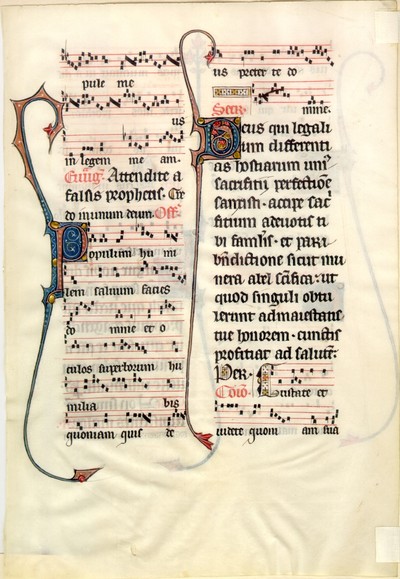 pule me
us
in legem me am.
Euug. Attendite a
falsis prophetis. Cre
do in unum deum. Off.
Populum hu mi
lem saluum facies
do mine et o
culos superborum hu
milia bis
quoniam quis de
us preter te do
Secr. mine.
Deus qui legali
um differenti
as hostiarum uni
sacrificii perfectioe
sanxisti. accipe sac
ficium a deuotis ti
bi famlis. et pari
bndictione sicut mu
nera abel scifica. ut
quod singuli obtu
lerunt ad maiestatis
tue honorem. cunctis
proficiat ad salute.
Per. Gustate et
Coio.
uidete quoni am sua